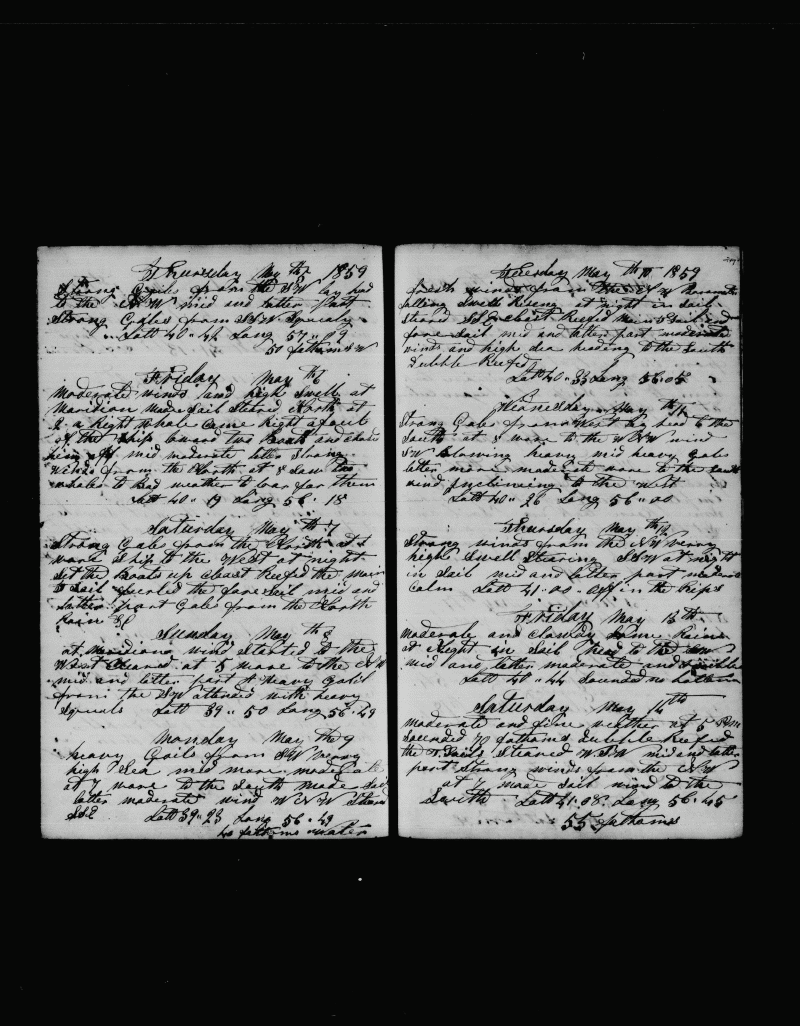 Thursday May th 5 1859
Strong Gails from the SW lay hed
to the NW mid and latter part
Strong Gales from SW Squaly
Latt 40 " 44 Long 57 " 09
50 fathoms
Friday May th 6
moderate winds and high Swell at
Maridion made Sail Steard North at
2 a right whale came right apout
of the Ship loward two Boats and chased
him off mid moderate latter Strong
winds from the North at 8 Saw two
whales to Bad weather to loar for them
Latt 40 " 19 Long 56 " 18
Saturday May th 7
Strong Gales from the North at
wore Ship to the West at night
Set the Boats up Close Reefed the Main
T Sail furled the fore Sail mid and
latter part Gales from the North
Rain &c
Sunday May th 8
at Maridiong wind Started to the
West Cleared at 5 wore to the NW
mid and latter part A heavy Gail
from the SW attened with heavy
Squals Latt 39 " 50 Long 56 " 29
Monday May th 9
heavy Gails from SW verry
high Sea mid more moderate
at 7 wore to the South made Sail
latter moderate wind WNW Steard
SSE Latt 39 " 23 Long 56 " 29
40 fathoms water
Tuesday May th 10 1859
fresh winds from the NW
falling Swell at night in Sail
Steard Close Reefed main T Sail and
fore Sail mid and latter part moderate
winds and high Sea heading to the South
Dubble Reefed
Latt 40 " 33 Long 56 " 05
Wednesday May th 11
Strong Gales from West lay head to the
South at 8 wore to the NNW wind
SW Blowing heavy mid heavy gale
latter more moderate wore to the South
wind Inclineing to the West
Latt 40 " 26 Long 56 " 00
Thursday May th 12
Strong winds from the NW verry
high Swell Stearing SSW at night
in Sail mid and latter part moderate
Calm Latt 41 " 00 " off in the Rips
Friday May 13 th
moderate and clowday Some Rain
at Night in Sail head to the
mid and latter moderate and
Latt 40 " 44 Sounded no bottom
Saturday May 14 th
moderate and fine wether at 5 Pm
Sounded 70 fathoms Dubble Reefed
the T Sails Steared WSW mid and latter
part Strong winds from the NW
at 4 made Sail wind to the
South Latt 41 " 08 " Long 56 " 45
55 fathoms